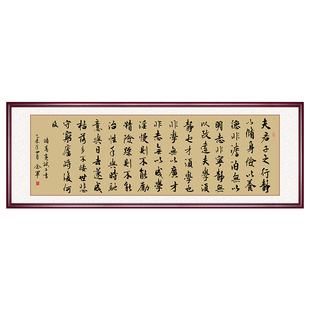 夫君子之行靜
以修身儉以養
德非澹泊無以
明志非寧靜無
以致遠夫學須
靜也才須學也
非學無以廣才
非志無以成學
淫慢則不能勵
精險躁則不能
治性年與時馳
意與日去遂成
枯落多不接世悲
守窮廬將復何
及
諸葛亮誡子書
乙未年四月